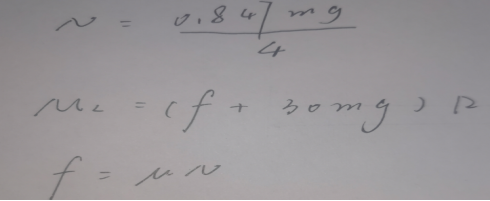 N = 0.847mg / 4
M₂ = (f + 30mg) R
f = μN